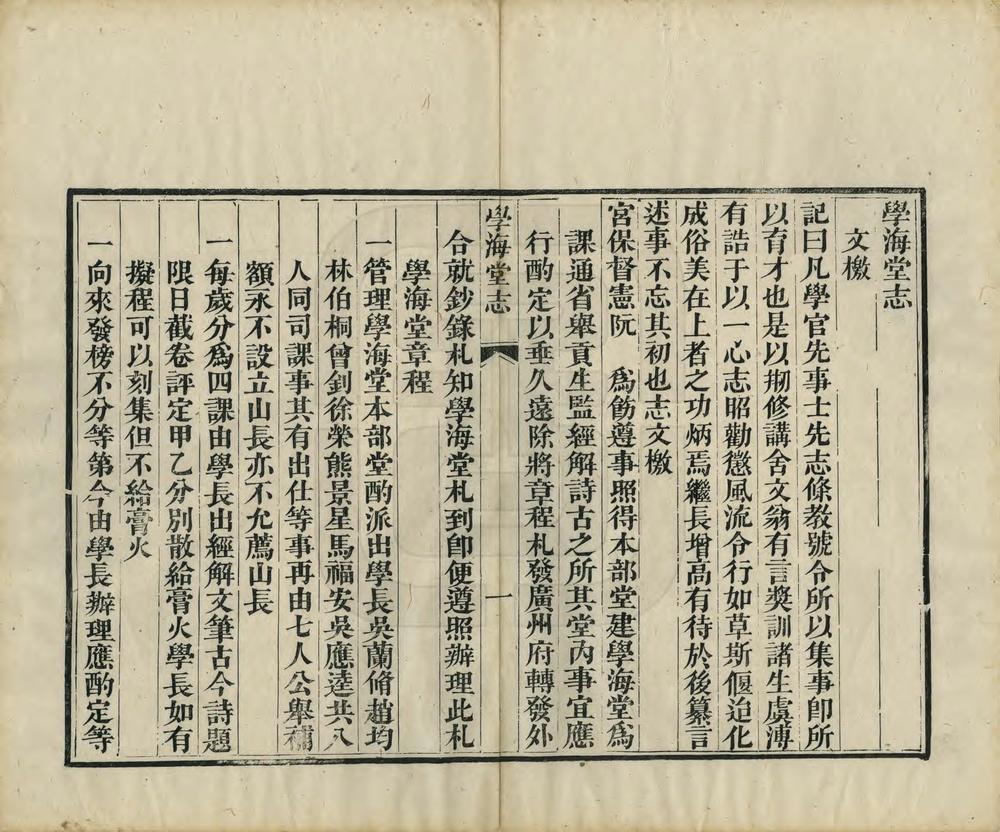 學海堂志
文檄
記曰凡學官先事士先志條教號令所以集事卽所
以育才也是以剏修講舍文翁有言獎訓諸生虞溥
有誥于以一心志昭勸懲風流令行如草斯偃迨化
成俗美在上者之功炳焉繼長增高有待於後纂言
述事不忘其初也志文檄
宮保督憲阮　爲飭遵事照得本部堂建學海堂爲
課通省舉貢生監經解詩古之所其堂內事宜應
行酌定以垂久遠除將章程札發廣州府轉發外
學海堂志　一
合就鈔錄札知學海堂札到卽便遵照辦理此札
學海堂章程
一管理學海堂本部堂酌派出學長吳蘭脩趙均
林伯桐曾釗徐榮熊景星馬福安吳應逵共八
人同司課事其有出仕等事再由七人公舉補
額永不設立山長亦不允薦山長
一每歲分爲四課由學長出經解文筆古今詩題
限日截卷評定甲乙分別散給膏火學長如有
擬程可以刻集但不給膏火
一向來發榜不分等第今由學長辦理應酌定等